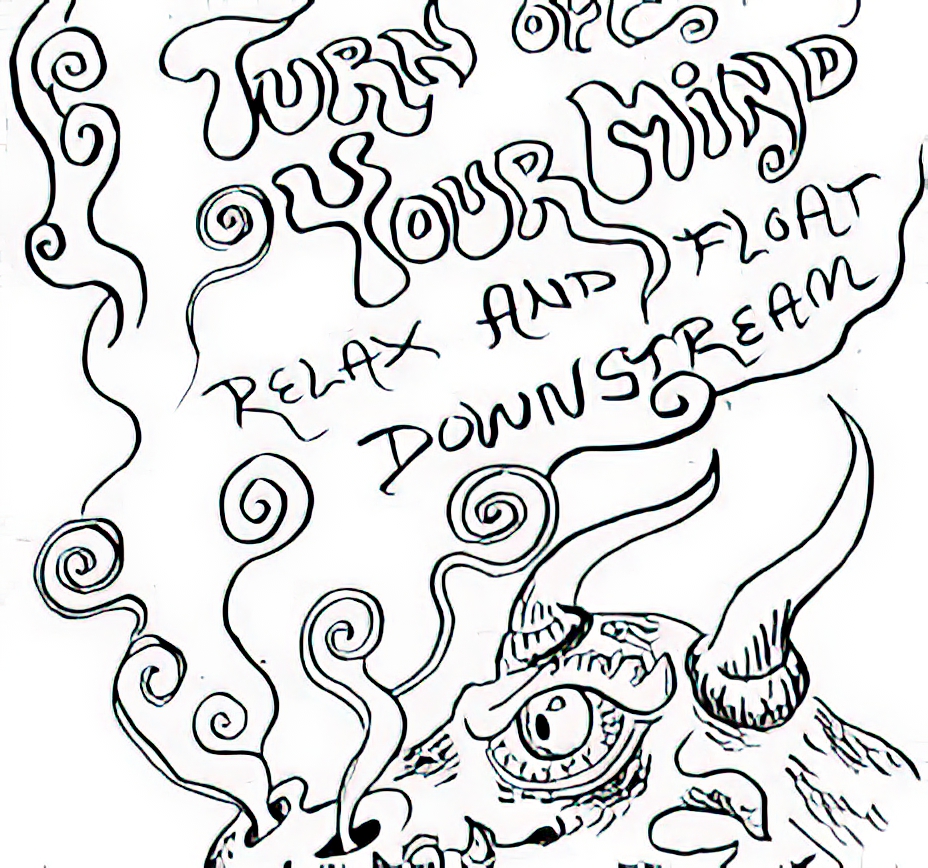 TURN
YOUR MiND
RELAX AND FLOAT
DOWNSTREAM